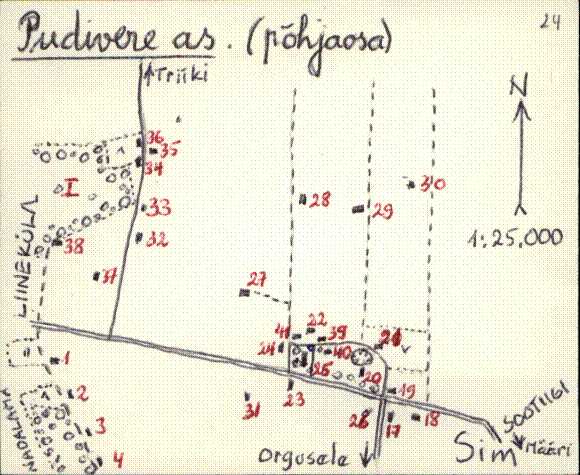 24
Pudivere as. (põhjaosa)
Triiki
N
1:25.000
36
35
34
I
33
32
38
37
LIINEKÜLA
28
29
30
27
22
41
39
24
40
21
25
20
19
23
31
26
17
18
1
2
3
4
Orgusele
Sim
SOOTIIGI
Määri